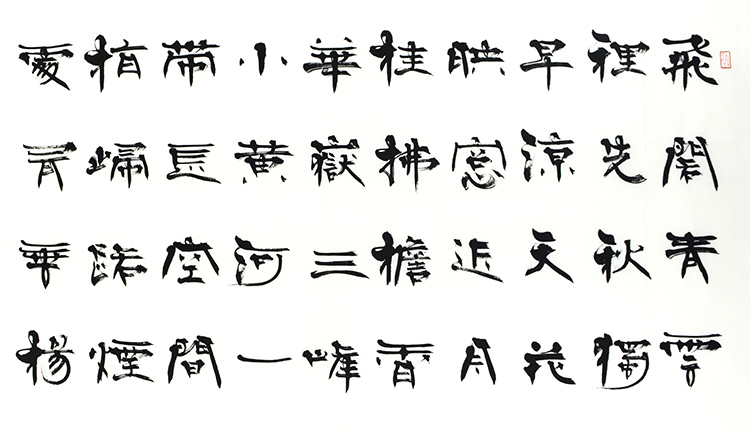 飛閣青雲
裡先秋獨
早涼天花
映窓近月
桂拂檐香
華嶽三峰
小黄河一
帶長空間
指歸路煙
處有垂楊